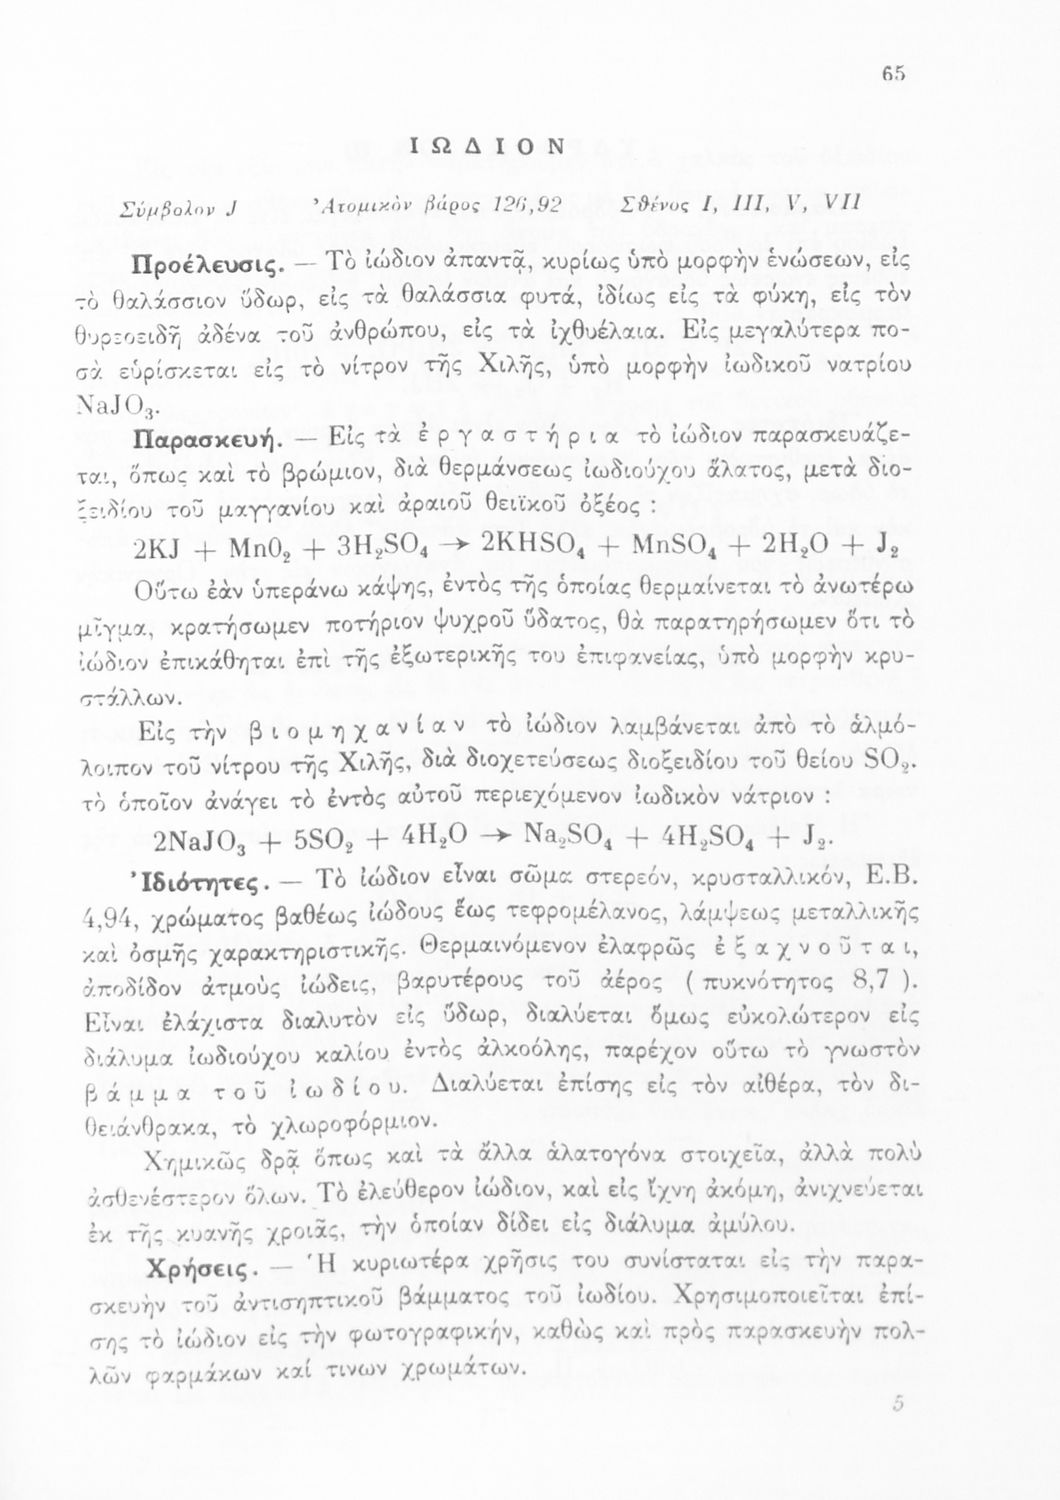 65
ΙΩΔΙΟΝ
Σύμβολον J Ἀτομικὸν βάρος 126,92 Σθένος I, III, V, VII
Προέλευσις. — Τὸ ἰώδιον ἀπαντᾷ, κυρίως ὑπὸ μορφὴν ἑνώσεων, εἰς
τὸ θαλάσσιον ὕδωρ, εἰς τὰ θαλάσσια φυτά, ἰδίως εἰς τὰ φύκη, εἰς τὸν
θυρεοειδῆ ἀδένα τοῦ ἀνθρώπου, εἰς τὰ ἰχθυέλαια. Εἰς μεγαλύτερα πο-
σὰ εὑρίσκεται εἰς τὸ νίτρον τῆς Χιλῆς, ὑπὸ μορφὴν ἰωδικοῦ νατρίου
NaJO₃.
Παρασκευή. — Εἰς τὰ ἐργαστήρια τὸ ἰώδιον παρασκευάζε-
ται, ὅπως καὶ τὸ βρώμιον, διὰ θερμάνσεως ἰωδιούχου ἅλατος, μετὰ διο-
ξειδίου τοῦ μαγγανίου καὶ ἀραιοῦ θειϊκοῦ ὀξέος :
2KJ + MnO₂ + 3H₂SO₄ → 2KHSO₄ + MnSO₄ + 2H₂O + J₂
Οὕτω ἐὰν ὑπεράνω κάψης, ἐντὸς τῆς ὁποίας θερμαίνεται τὸ ἀνωτέρω
μῖγμα, κρατήσωμεν ποτήριον ψυχροῦ ὕδατος, θὰ παρατηρήσωμεν ὅτι τὸ
ἰώδιον ἐπικάθηται ἐπὶ τῆς ἐξωτερικῆς του ἐπιφανείας, ὑπὸ μορφὴν κρυ-
στάλλων.
Εἰς τὴν βιομηχανίαν τὸ ἰώδιον λαμβάνεται ἀπὸ τὸ ἁλμό-
λοιπον τοῦ νίτρου τῆς Χιλῆς, διὰ διοχετεύσεως διοξειδίου τοῦ θείου SO₂.
τὸ ὁποῖον ἀνάγει τὸ ἐντὸς αὐτοῦ περιεχόμενον ἰωδικὸν νάτριον :
2NaJO₃ + 5SO₂ + 4H₂O → Na₂SO₄ + 4H₂SO₄ + J₂.
Ἰδιότητες. — Τὸ ἰώδιον εἶναι σῶμα στερεόν, κρυσταλλικόν, Ε.Β.
4,94, χρώματος βαθέως ἰώδους ἕως τεφρομέλανος, λάμψεως μεταλλικῆς
καὶ ὀσμῆς χαρακτηριστικῆς. Θερμαινόμενον ἐλαφρῶς ἐξαχνοῦται,
ἀποδίδον ἀτμοὺς ἰώδεις, βαρυτέρους τοῦ ἀέρος ( πυκνότητος 8,7 ).
Εἶναι ἐλάχιστα διαλυτὸν εἰς ὕδωρ, διαλύεται ὅμως εὐκολώτερον εἰς
διάλυμα ἰωδιούχου καλίου ἐντὸς ἀλκοόλης, παρέχον οὕτω τὸ γνωστὸν
βάμμα τοῦ ἰωδίου. Διαλύεται ἐπίσης εἰς τὸν αἰθέρα, τὸν δι-
θειάνθρακα, τὸ χλωροφόρμιον.
Χημικῶς δρᾷ ὅπως καὶ τὰ ἄλλα ἁλατογόνα στοιχεῖα, ἀλλὰ πολὺ
ἀσθενέστερον ὅλων. Τὸ ἐλεύθερον ἰώδιον, καὶ εἰς ἴχνη ἀκόμη, ἀνιχνεύεται
ἐκ τῆς κυανῆς χροιᾶς, τὴν ὁποίαν δίδει εἰς διάλυμα ἀμύλου.
Χρήσεις. — Ἡ κυριωτέρα χρῆσις του συνίσταται εἰς τὴν παρα-
σκευὴν τοῦ ἀντισηπτικοῦ βάμματος τοῦ ἰωδίου. Χρησιμοποιεῖται ἐπί-
σης τὸ ἰώδιον εἰς τὴν φωτογραφικήν, καθὼς καὶ πρὸς παρασκευὴν πολ-
λῶν φαρμάκων καί τινων χρωμάτων.
5